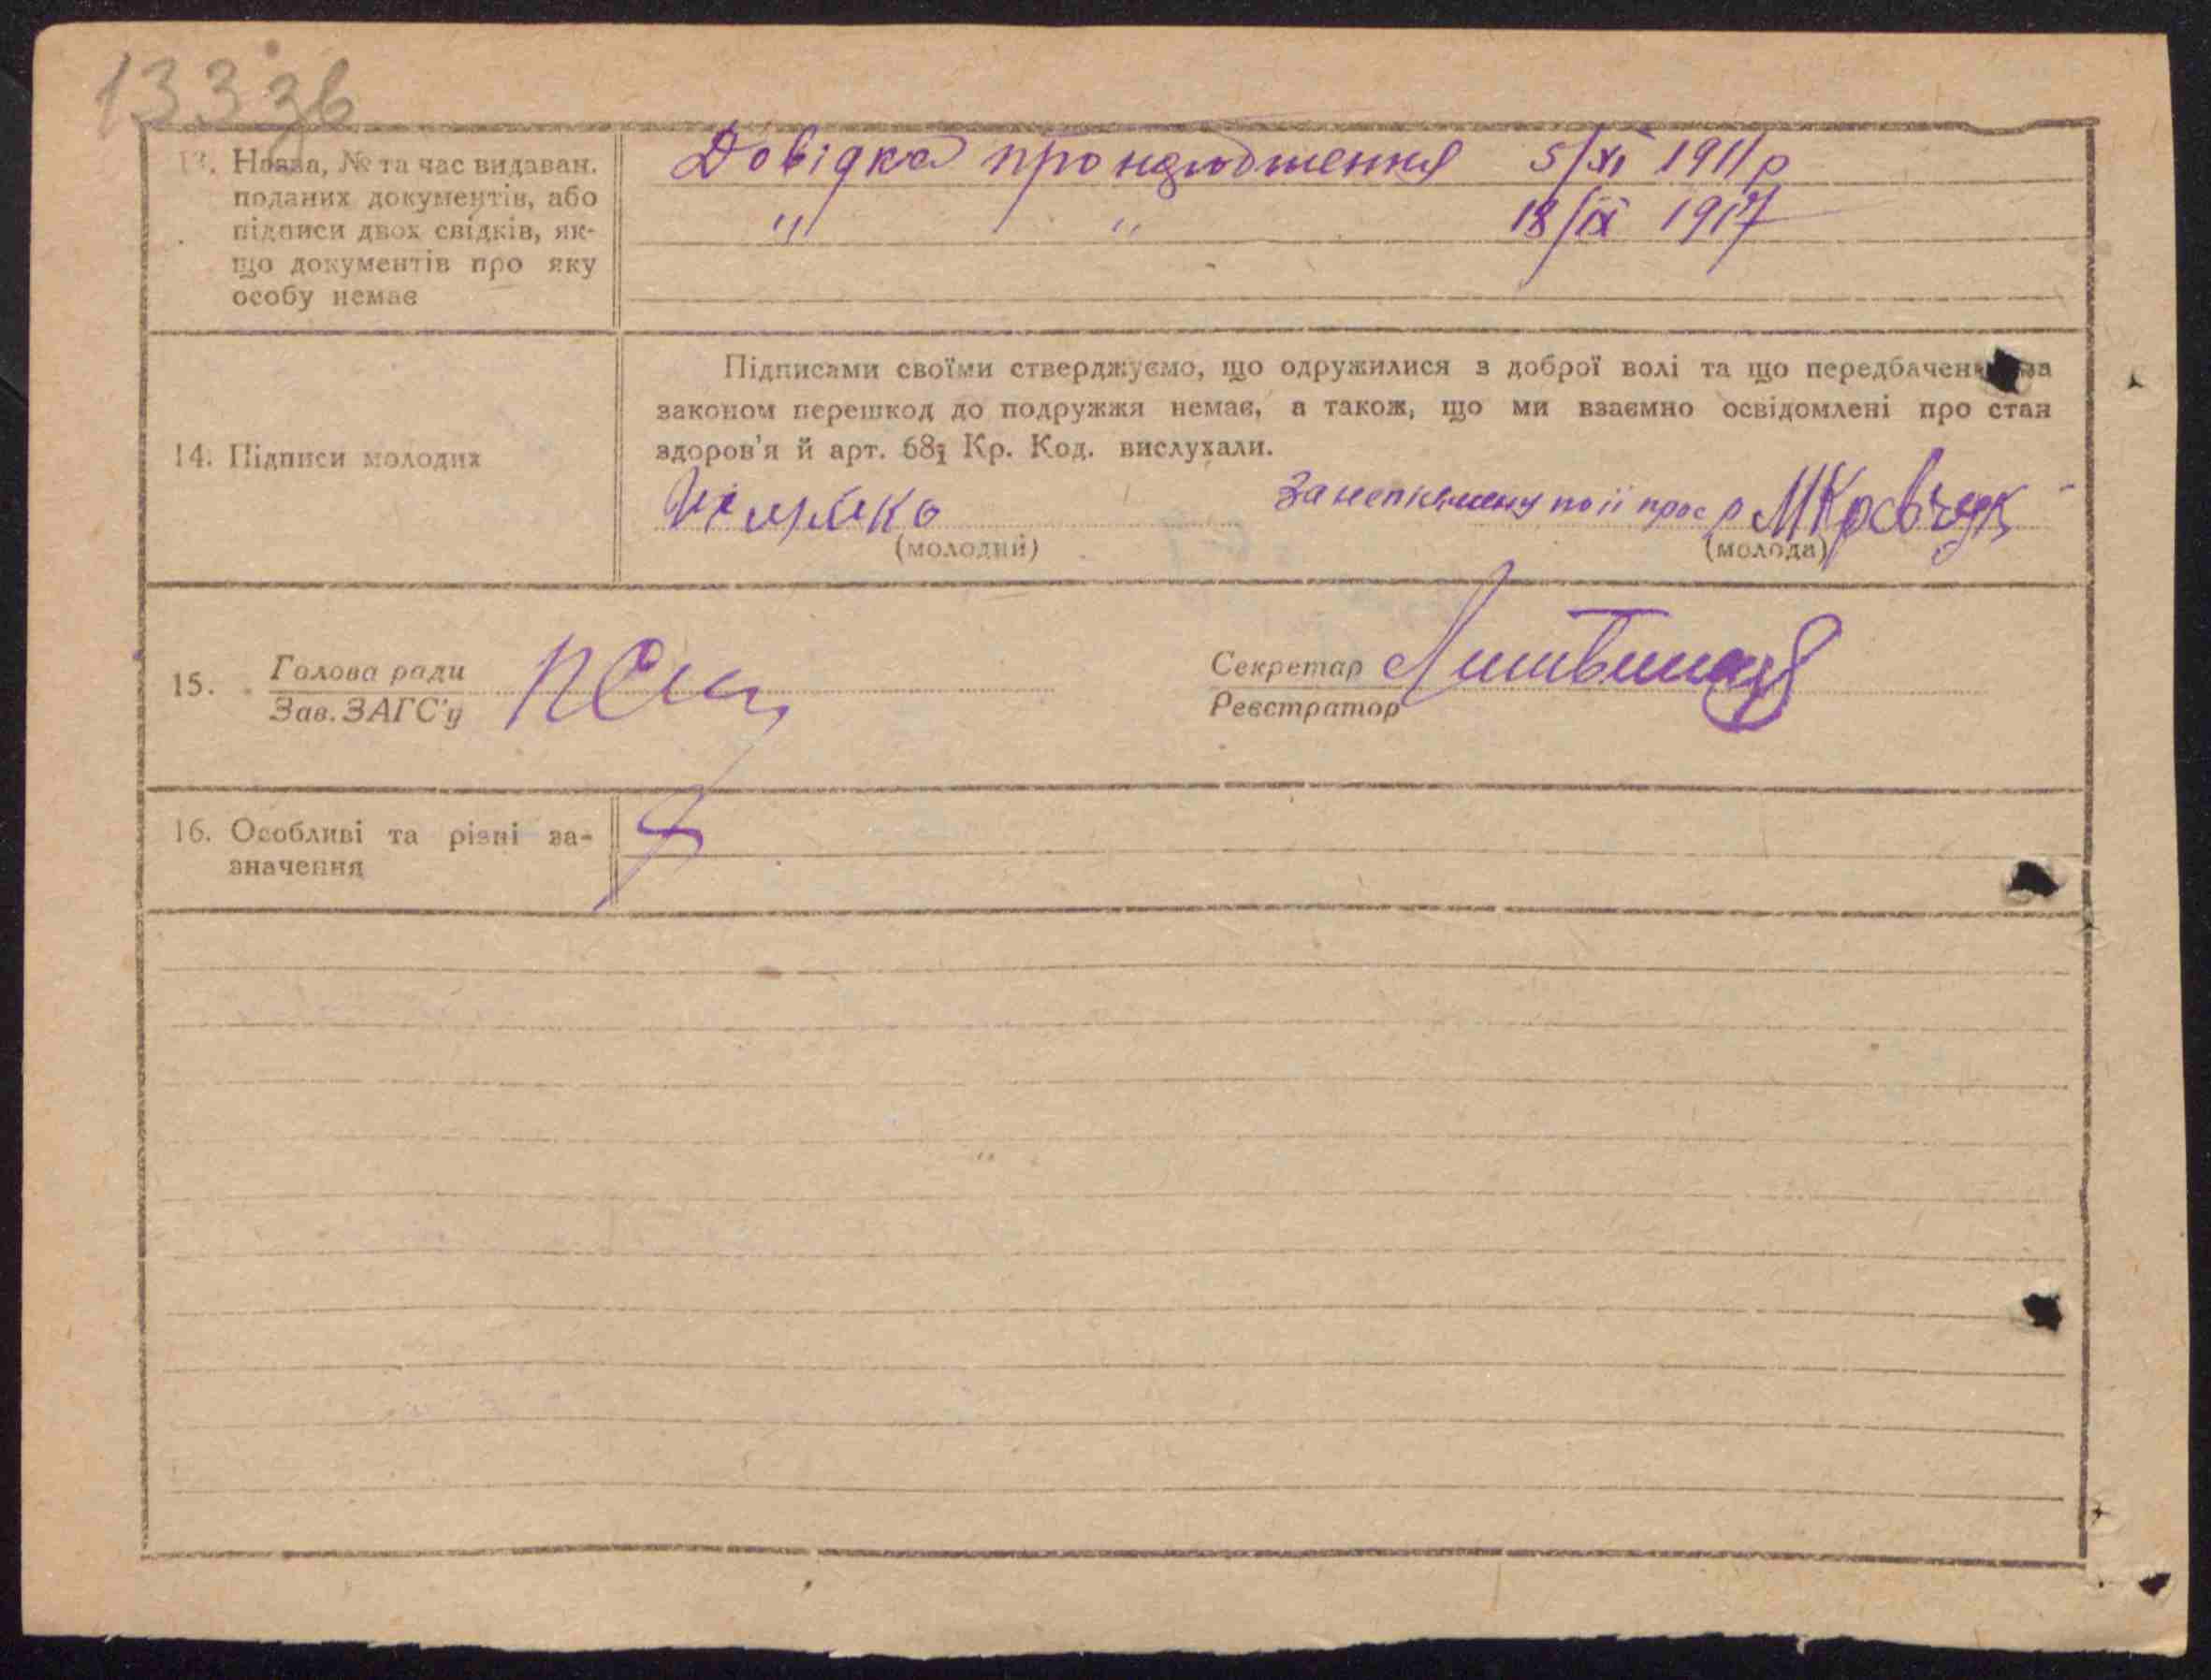 133 зв
13. Назва, № та час видаван.
поданих документів, або
підписи двох свідків, як-
що документів про яку
особу немає
Довідка про 5/XI 1911 р
" " 18/IX 1917
14. Підписи молодих
Підписами своїми стверджуємо, що одружилися з доброї волі та що передбачених за
законом перешкод до подружжя немає, а також, що ми взаємно освідомлені про стан
здоров'я й арт. 68₁ Кр. Код. вислухали.
За неписьмену по її прос р МКравчук
(молодий) (молода)
15. Голова ради
Зав. ЗАГС'у
Секретар
Реєстратор
16. Особливі та різні за-
значення